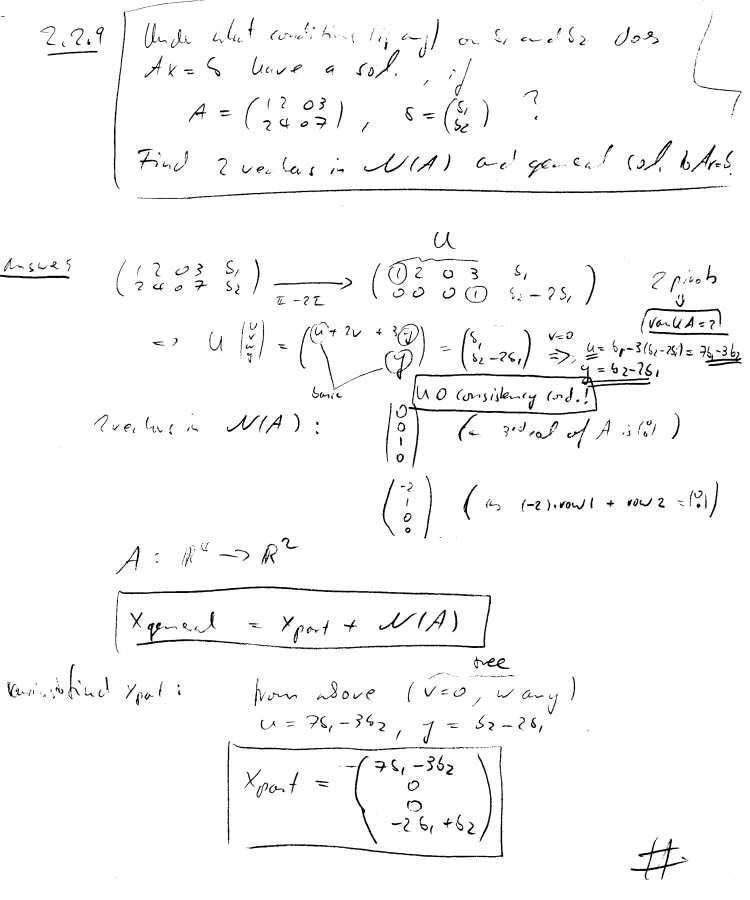 2.2.9 Unde what conditions (if any) on b₁ and b₂ does
Ax = b have a sol., if
A = (1 2 0 3; 2 4 0 7), b = (b₁; b₂) ?
Find 2 vectors in N(A) and general sol. to Ax=b.
U
Answer (1 2 0 3 b₁; 2 4 0 7 b₂) II-2I → (① 2 0 3 b₁; 0 0 0 ① b₂-2b₁) 2 pivots
⇓
rank A = 2
=> U (u; v; w; y) = (u + 2v + 3y; y) = (b₁; b₂-2b₁) v=0 => u = b₁-3(b₂-2b₁) = 7b₁-3b₂
y = b₂-2b₁
basic NO consistency cond.!
2 vectors in N(A) : (0; 0; 1; 0) (as 3rd col of A is (0; 0))
(-2; 1; 0; 0) (as (-2)·row1 + row2 = (0; 0))
A : ℝ⁴ -> ℝ²
x general = x part + N(A)
free
find x part : from above (v=0, w any)
u = 7b₁-3b₂, y = b₂-2b₁
x part = (7b₁-3b₂; 0; 0; -2b₁+b₂)
#